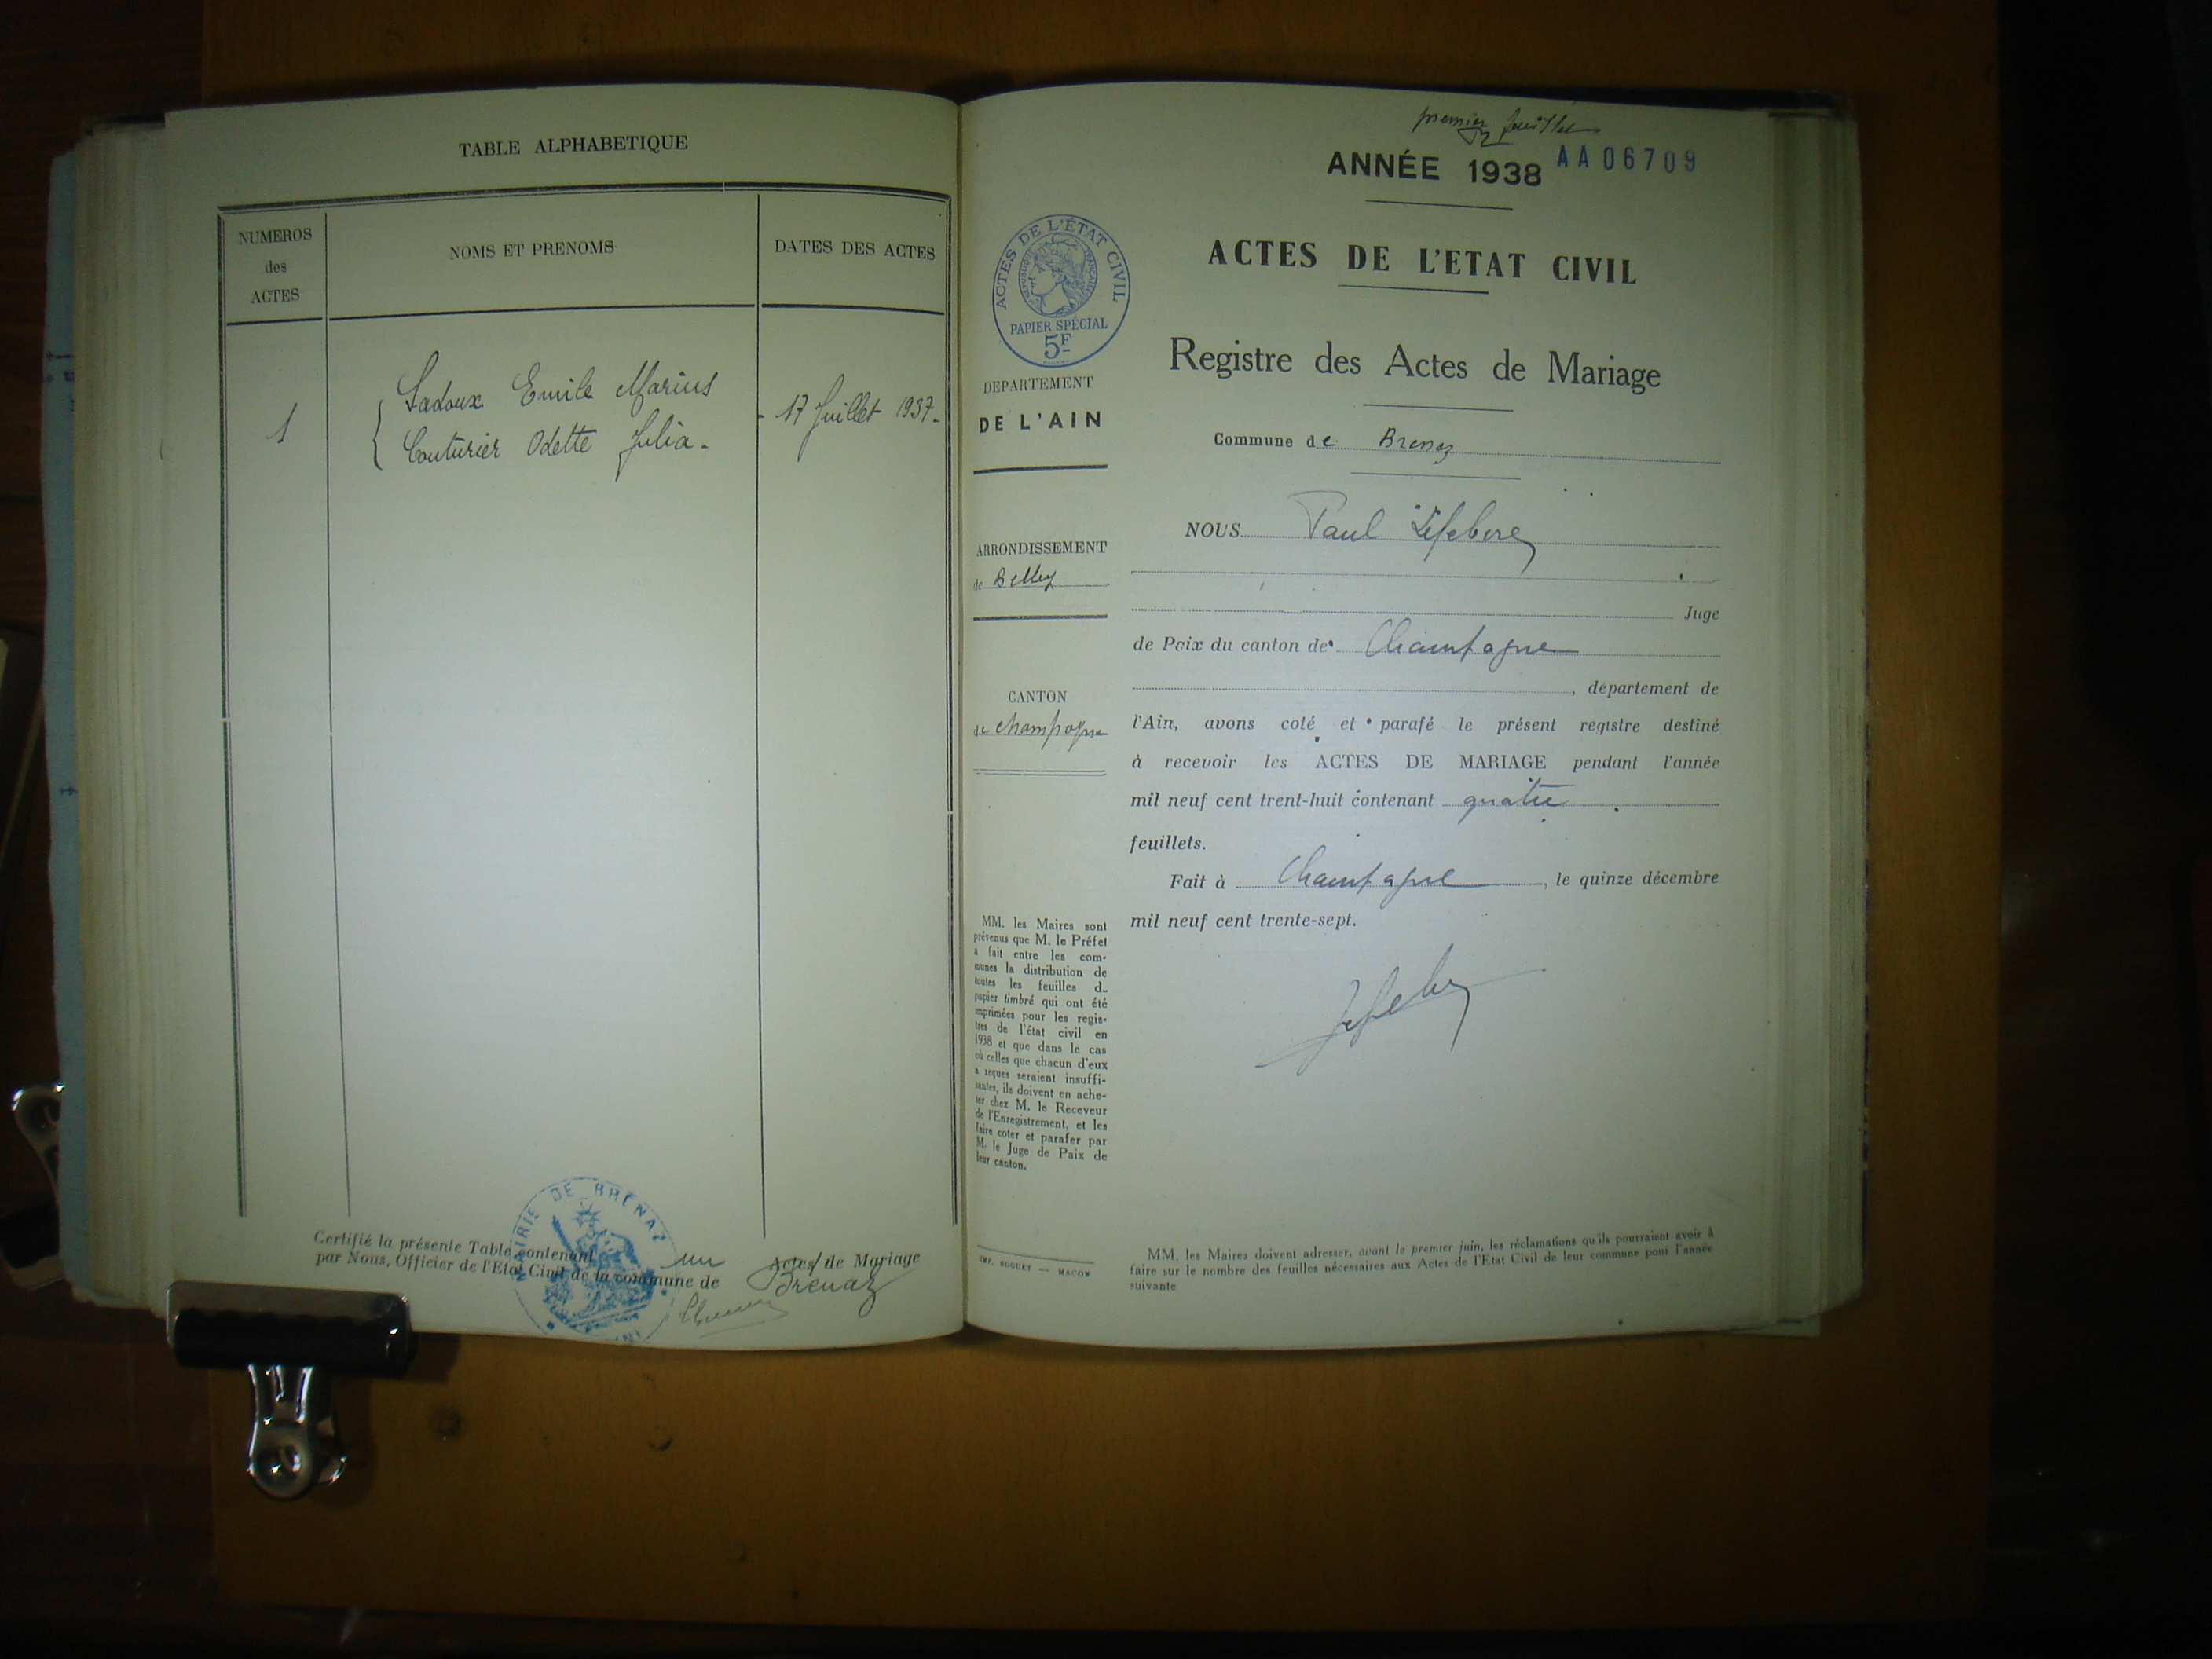 TABLE ALPHABETIQUE
NUMEROS
des
ACTES
NOMS ET PRENOMS
DATES DES ACTES
1
Sadoux Emile Marius
Couturier Odette Julia.
- 17 Juillet 1937-
Certifié la présente Table contenant un Actes de Mariage
par Nous, Officier de l'Etat Civil de la commune de Brenaz
MAIRIE DE BRENAZ
premier feuillet
ANNÉE 1938
AA06709
ACTES DE L'ÉTAT CIVIL
RÉPUBLIQUE FRANÇAISE
PAPIER SPÉCIAL
5F
DEPARTEMENT
DE L'AIN
ARRONDISSEMENT
de Belley
CANTON
de Champagne
MM. les Maires sont
prévenus que M. le Préfet
a fait entre les com-
munes la distribution de
toutes les feuilles d_
papier timbré qui ont été
imprimées pour les regis-
tres de l'état civil en
1938 et que dans le cas
où celles que chacun d'eux
a reçues seraient insuffi-
santes, ils doivent en ache-
ter chez M. le Receveur
de l'Enregistrement, et les
faire coter et parafer par
M. le Juge de Paix de
leur canton.
IMP. BUGUET — MACON
ACTES DE L'ETAT CIVIL
Registre des Actes de Mariage
Commune de Brenaz
NOUS Paul Lefebvre
Juge
de Paix du canton de Champagne
, département de
l'Ain, avons coté et parafé le présent registre destiné
à recevoir les ACTES DE MARIAGE pendant l'année
mil neuf cent trent-huit contenant quatre
feuillets.
Fait à Champagne, le quinze décembre
mil neuf cent trente-sept.
MM. les Maires doivent adresser, avant le premier juin, les réclamations qu'ils pourraient avoir à
faire sur le nombre des feuilles nécessaires aux Actes de l'Etat Civil de leur commune pour l'année
suivante